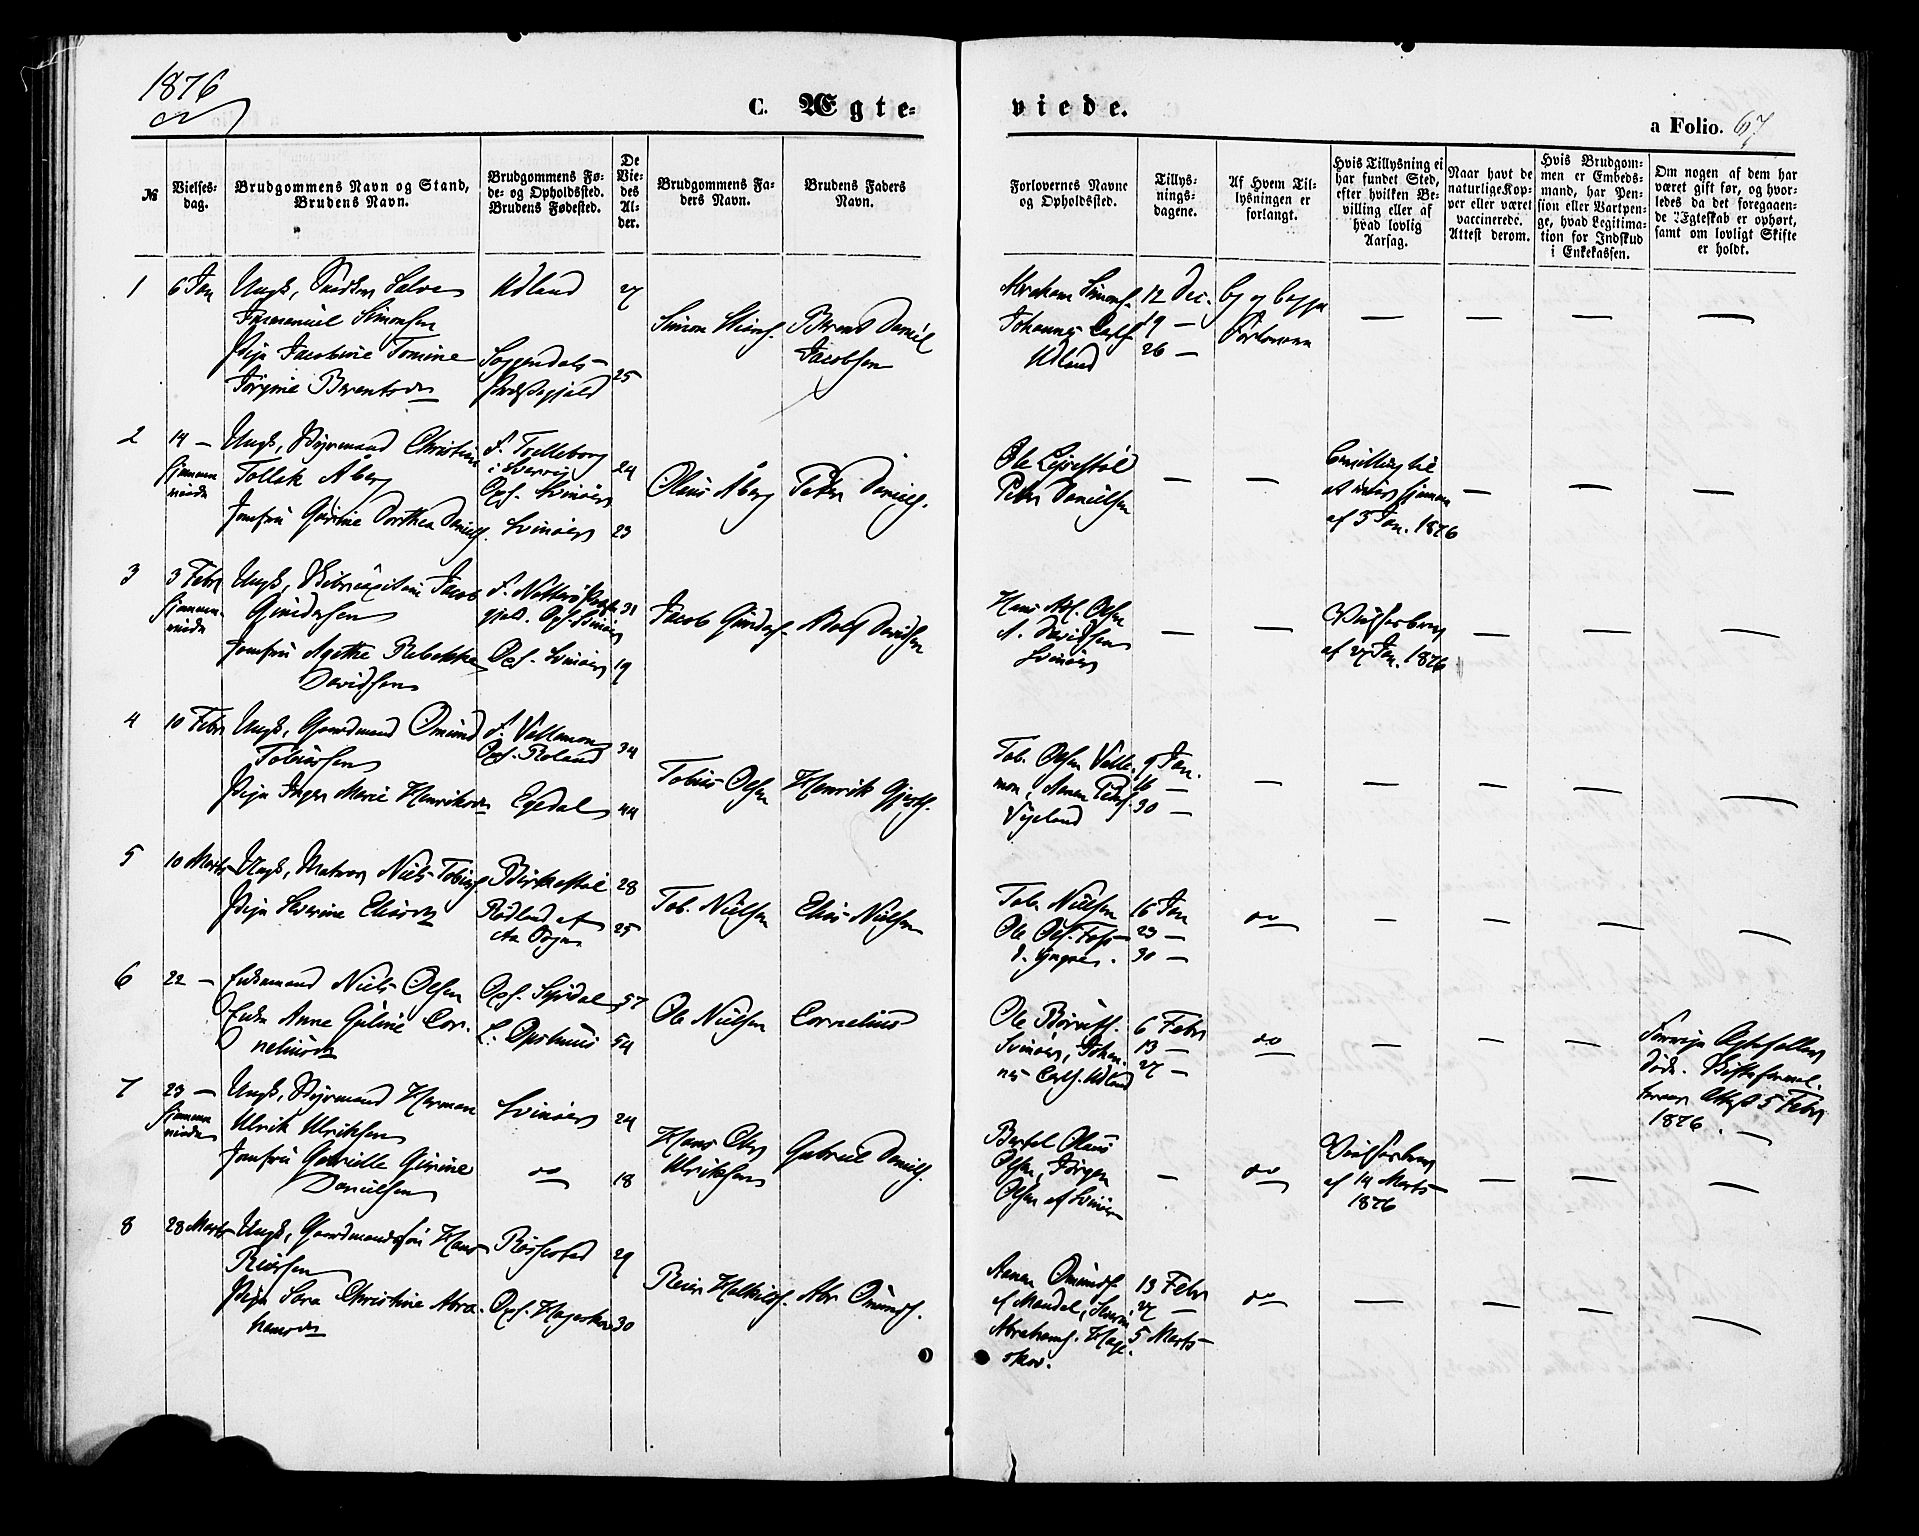 1876
C. Ægte-
viede.
a Folio. 67
№
Vielses-
dag.
Brudgommens Navn og Stand,
Brudens Navn.
Brudgommens Fø-
de- og Opholdssted.
Brudens Fødested.
De
Vie-
des
Al-
der.
Brudgommens Fa-
ders Navn.
Brudens Faders
Navn.
Forlovernes Navne
og Opholdssted.
Tillys-
nings-
dagene.
Af Hvem Til-
lysningen er
forlangt.
Hvis Tillysning ei
har fundet Sted,
efter hvilken Be-
villing eller af
hvad lovlig
Aarsag.
Naar havt de
naturlige Kop-
per eller været
vaccinerede.
Attest derom.
Hvis Brudgom-
men er Embeds-
mand, har Pen-
sion eller Vartpen-
ge, hvad Legitima-
tion for Indskud
i Enkekassen.
Om nogen af dem har
været gift før, og hvor-
ledes da det foregaaen-
de Ægteskab er ophørt,
samt om lovligt Skifte
er holdt.
1
6 Jan
Ungk, Salve
Immanuel Simonsen
Pige Jacobine Tomine
Jørgine Berentsd
Udland
27
Soggendals
Præstegjeld
25
Simon
Berent Daniel
Jacobsen
Abraham Simons.
Johannes Carls.
Udland
12 Dec.
19 —
26 —
—
—
—
—
2
14 —
hjemme
viede
Ungk, Styrmand Christian
Tollak Åberg
Jomfru Gurine Dorthea Daniels.
f. Trelleborg
i Sverrig
Oph. Svinøer
Svinøer
24
23
Olaus Åberg
Peter Daniels.
Ole
Peter Danielsen
—
—
Bevilling til
at vies hjemme
af 5 Jan. 1876
—
—
—
3
3 Febr
hjemme
viede
Ungk, Jacob
Gundersen
Jomfru Agethe Rebekka
Davidsen
f. Nøtterø Præste
gjeld. Oph. Svinøer
Oph. Svinøer
31
19
Jacob Gunders.
Adolf Davidsen
Hans Olsen
A. Davidsen
Svinøer
—
—
af 27 Jan. 1876
—
—
—
4
10 Febr
Ungk, Gaardmand Omund
Tobiassen
Pige Inger Marie Henriksd
f. Vallemon
Oph. Roland
Egedal
34
44
Tobias Olsen
Henrik
Tob. Olsen Valle-
mon, Anen Peders.
Vigeland
9 Jan.
16 —
30 —
—
—
—
—
—
5
10 Marts
Ungk, Matros Niels Tobias
Pige Severine Eliasd
Birkestøl
Rødland af
Aa Sogn
28
25
Tob. Nielsen
Elias Nielsen
Tob. Nielsen
Ole Ols.
16 Jan
23 —
30 —
do
—
—
—
—
6
22 —
Enkemand Niels Olsen
Enke Anne Guline Cor-
neliusd
Oph. Syrdal
L. Opshuus
57
54
Ole Nielsen
Cornelius
Ole
Svinøer, Johan-
nes Carls. Udland
6 Febr
13 —
27 —
do
—
—
—
Forrige Ægtefæller
døde. Skifteforval-
terens Attest 5 Febr
1876.
7
23 —
hjemme
viede
Ungk, Styrmand Herman
Ulrik Ulriksen
Jomfru Gabrielle Gurine
Danielsen
Svinøer
do
24
18
Hans
Ulriksen
Gabriel Daniels.
Bertel Olaus
Olsen, Jørgen
Olsen af Svinøer
—
do
af 14 Marts
1876
—
—
—
8
28 Marts
Ungk, Gaardmandssøn Hans
Reiersen
Pige Sara Christine Abra-
hamsd
Røssestad
Oph. Hageskov
29
30
Reier
Abr Omunds.
Aanen Omunds.
af Mandal,
Abrahams. Hage-
skov.
13 Febr
27 —
5 Marts
do
—
—
—
—